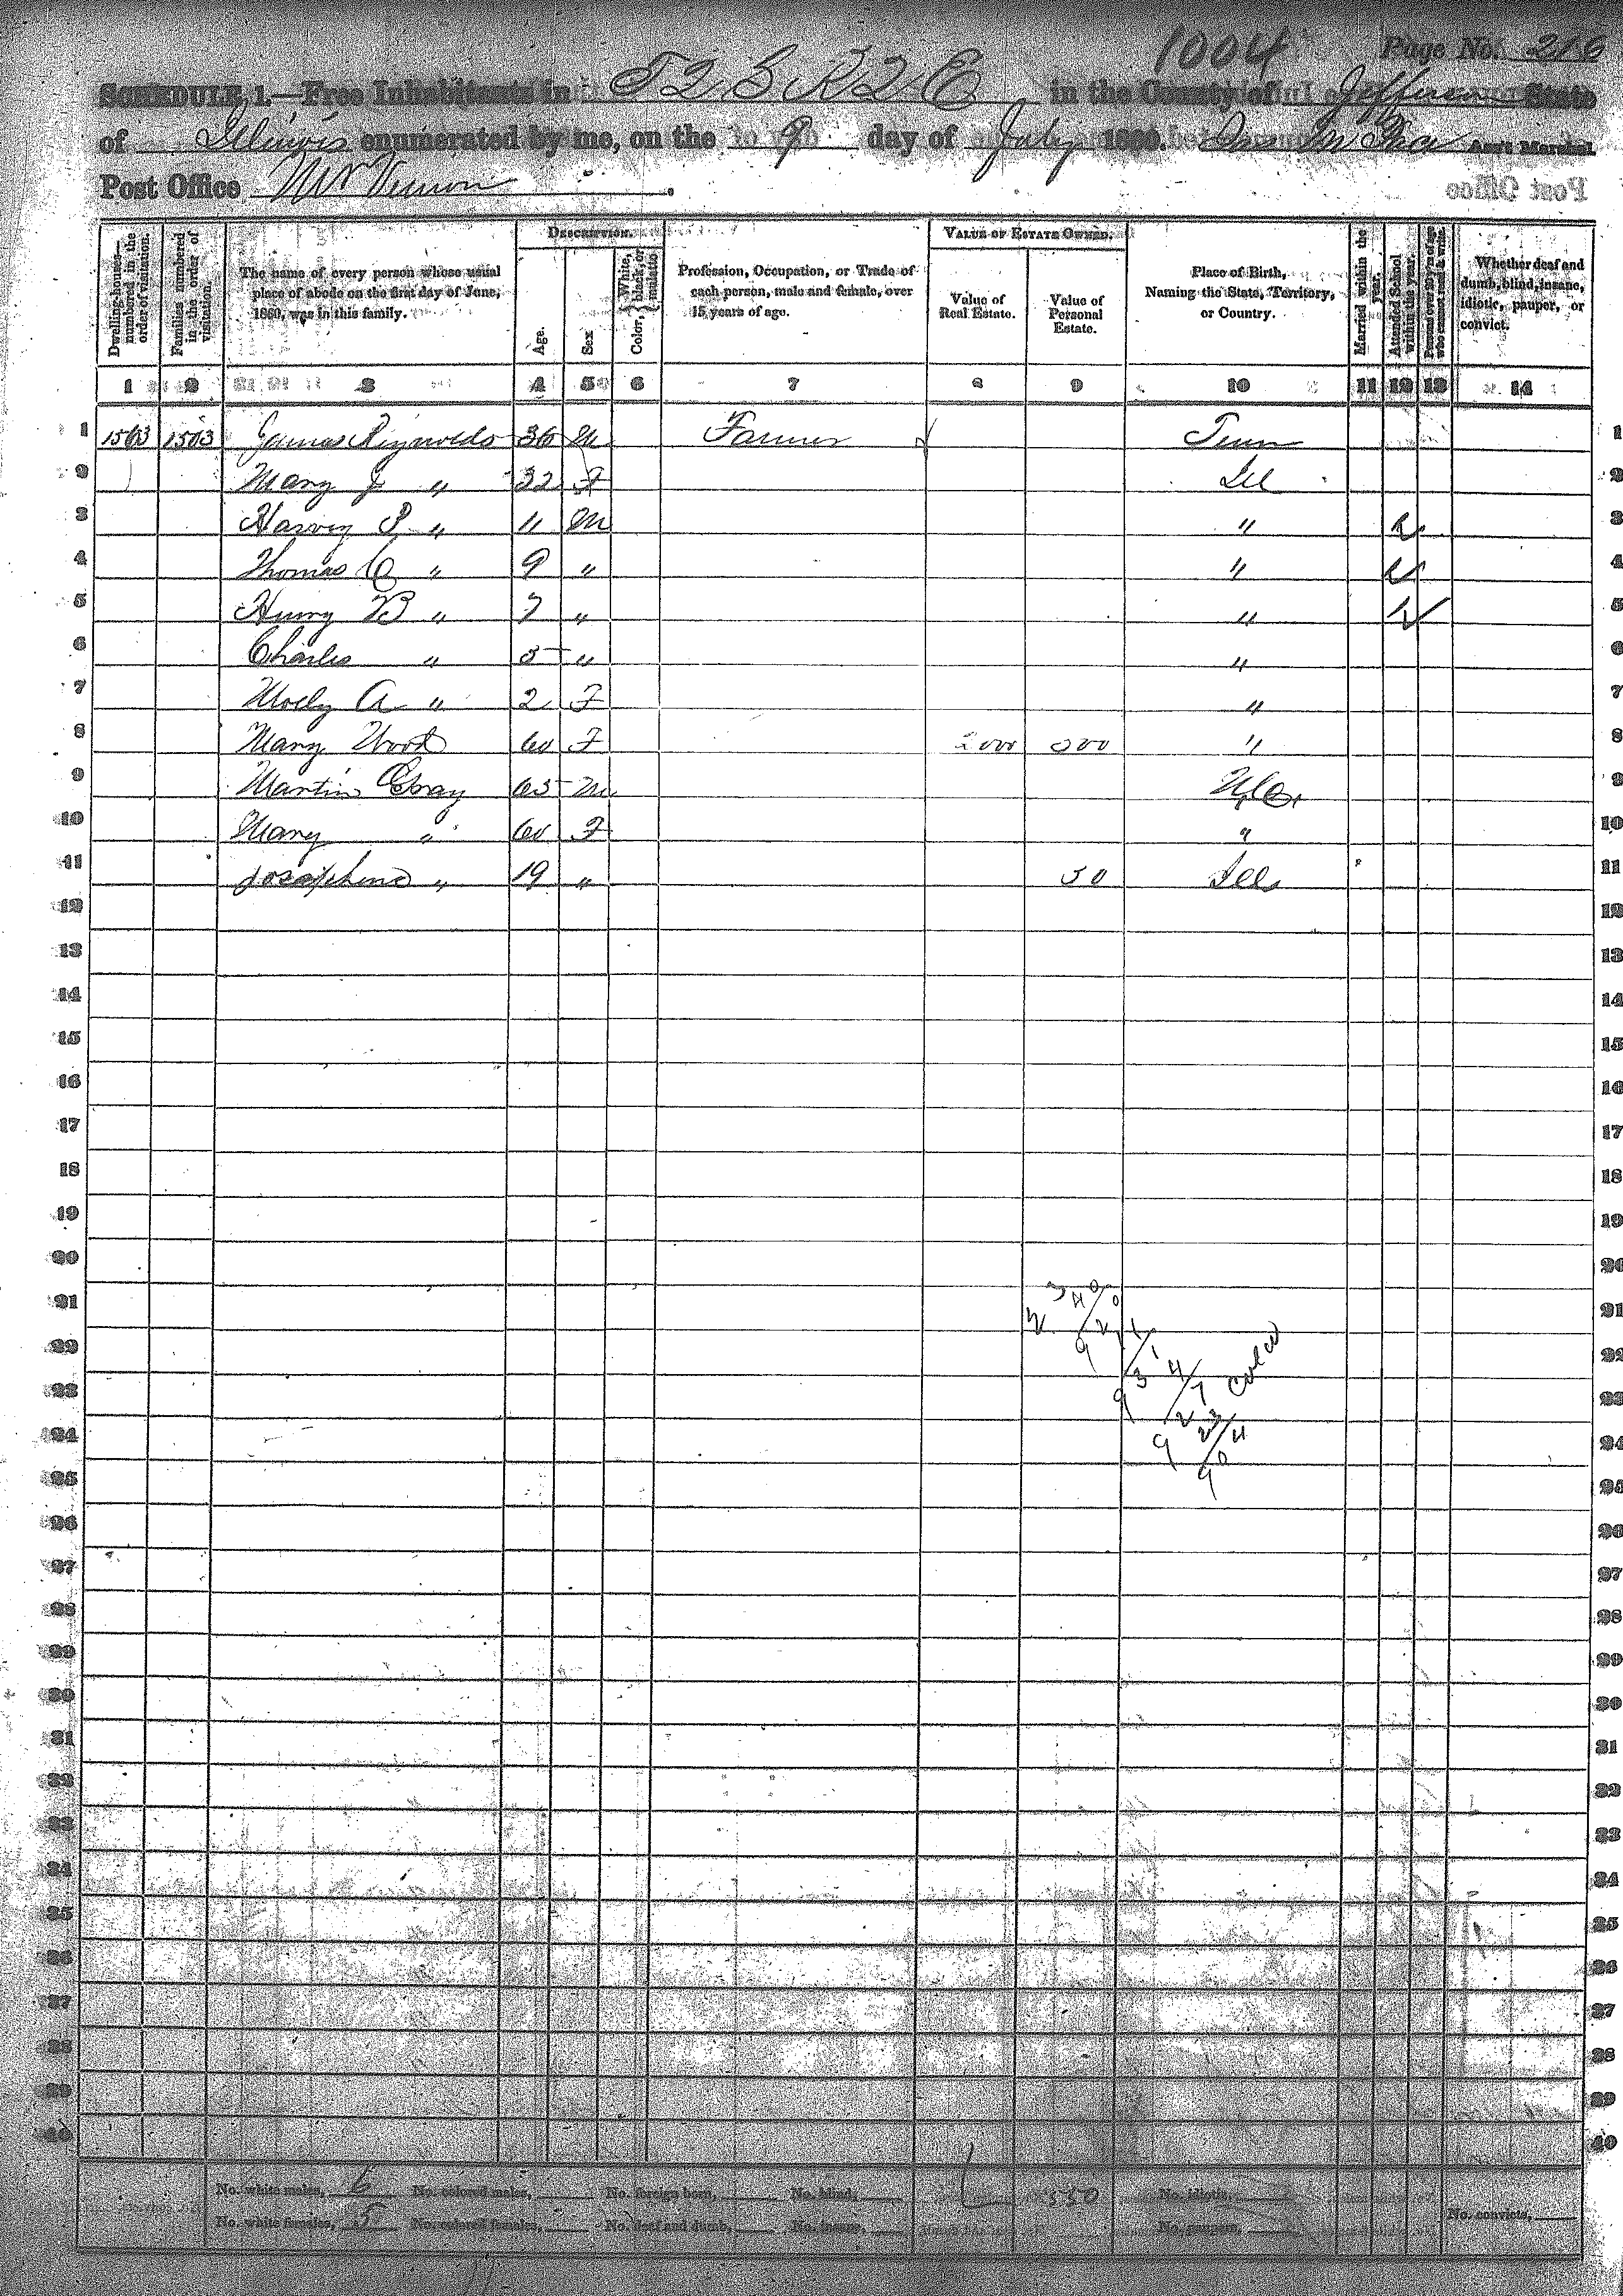 1004 Page No. 216
SCHEDULE 1.—Free Inhabitants in T 2 S R 2 E in the County of Jefferson State
of Illinois enumerated by me, on the 9 day of July 1860. Ass't Marshal.
Post Office Mt Vernon.
Dwelling-houses—numbered in the order of visitation.
Families numbered in the order of visitation.
The name of every person whose usual place of abode on the first day of June, 1860, was in this family.
DESCRIPTION.
Age.
Sex
Color, { White, black, or mulatto.
Profession, Occupation, or Trade of each person, male and female, over 15 years of age.
VALUE OF ESTATE OWNED.
Value of Real Estate.
Value of Personal Estate.
Place of Birth, Naming the State, Territory, or Country.
Married within the year.
Attended School within the year.
Persons over 20 y'rs of age who cannot read & write.
Whether deaf and dumb, blind, insane, idiotic, pauper, or convict.
1 2 3 4 5 6 7 8 9 10 11 12 13 14
1 1503 1503 James Reynolds 36 M Farmer Tenn 1
2 Mary J " 32 F Ill 2
3 Harvey P " 11 M " 3
4 Thomas C " 9 " " 4
5 Henry B " 7 " " 5
6 Charles " 5 " " 6
7 Molly A " 2 F " 7
8 Mary Wood 60 F 2000 500 " 8
9 Martin Gray 65 M 9
10 Mary " 60 F " 10
11 Josephine " 19 " 50 Ill 11
12 12
13 13
14 14
15 15
16 16
17 17
18 18
19 19
20 20
21 21
22 22
23 23
24 24
25 25
26 26
27 27
28 28
29 29
30 30
31 31
32 32
33 33
34 34
35 35
36 36
37 37
38 38
39 39
40 40
No. white males, 6 No. colored males, No. foreign born, No. blind, 550 No. idiotic,
No. white females, 5 No. colored females, No. deaf and dumb, No. insane, No. paupers, No. convicts,